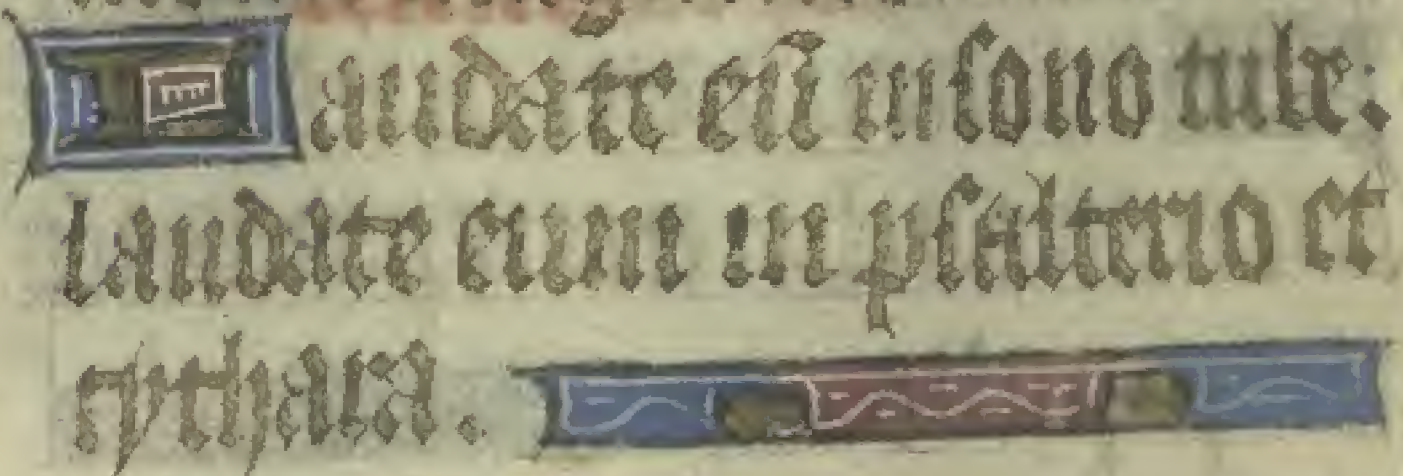 Laudate eū in sono tube:
laudate eum in psalterio et
cythara.